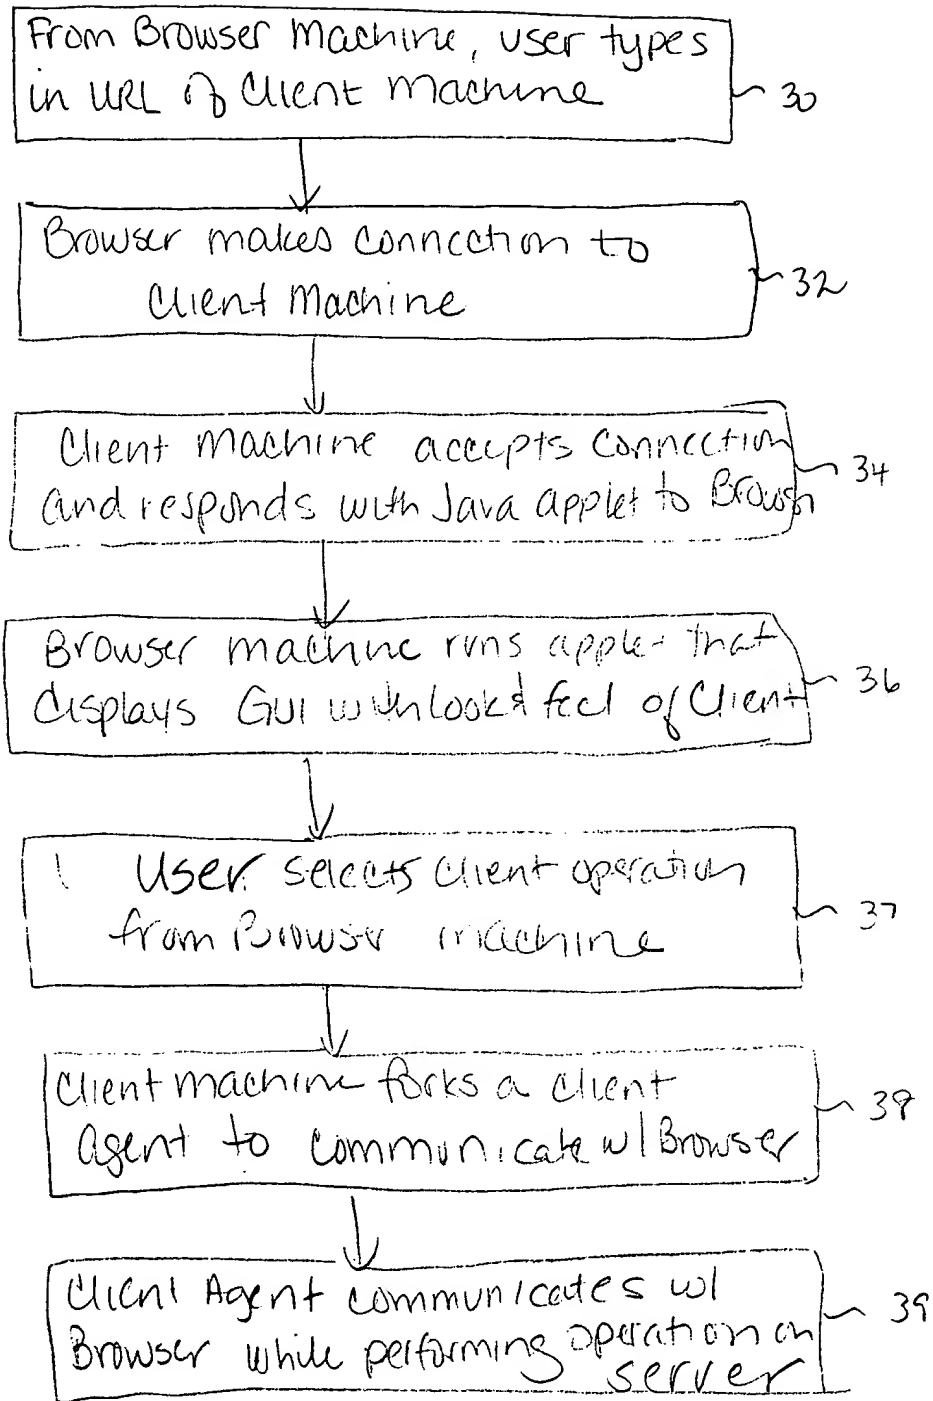 From Browser Machine, user types
in URL of Client Machine
30
Browser makes connection to
Client Machine
32
Client Machine accepts connection
and responds with Java applet to Brows
34
Browser machine runs applet that
displays GUI with look & feel of Client
36
User selects client operation
from Browser machine
37
Client machine forks a client
Agent to communicate w/ Browser
38
Client Agent communicates w/
Browser while performing operation on
server
39